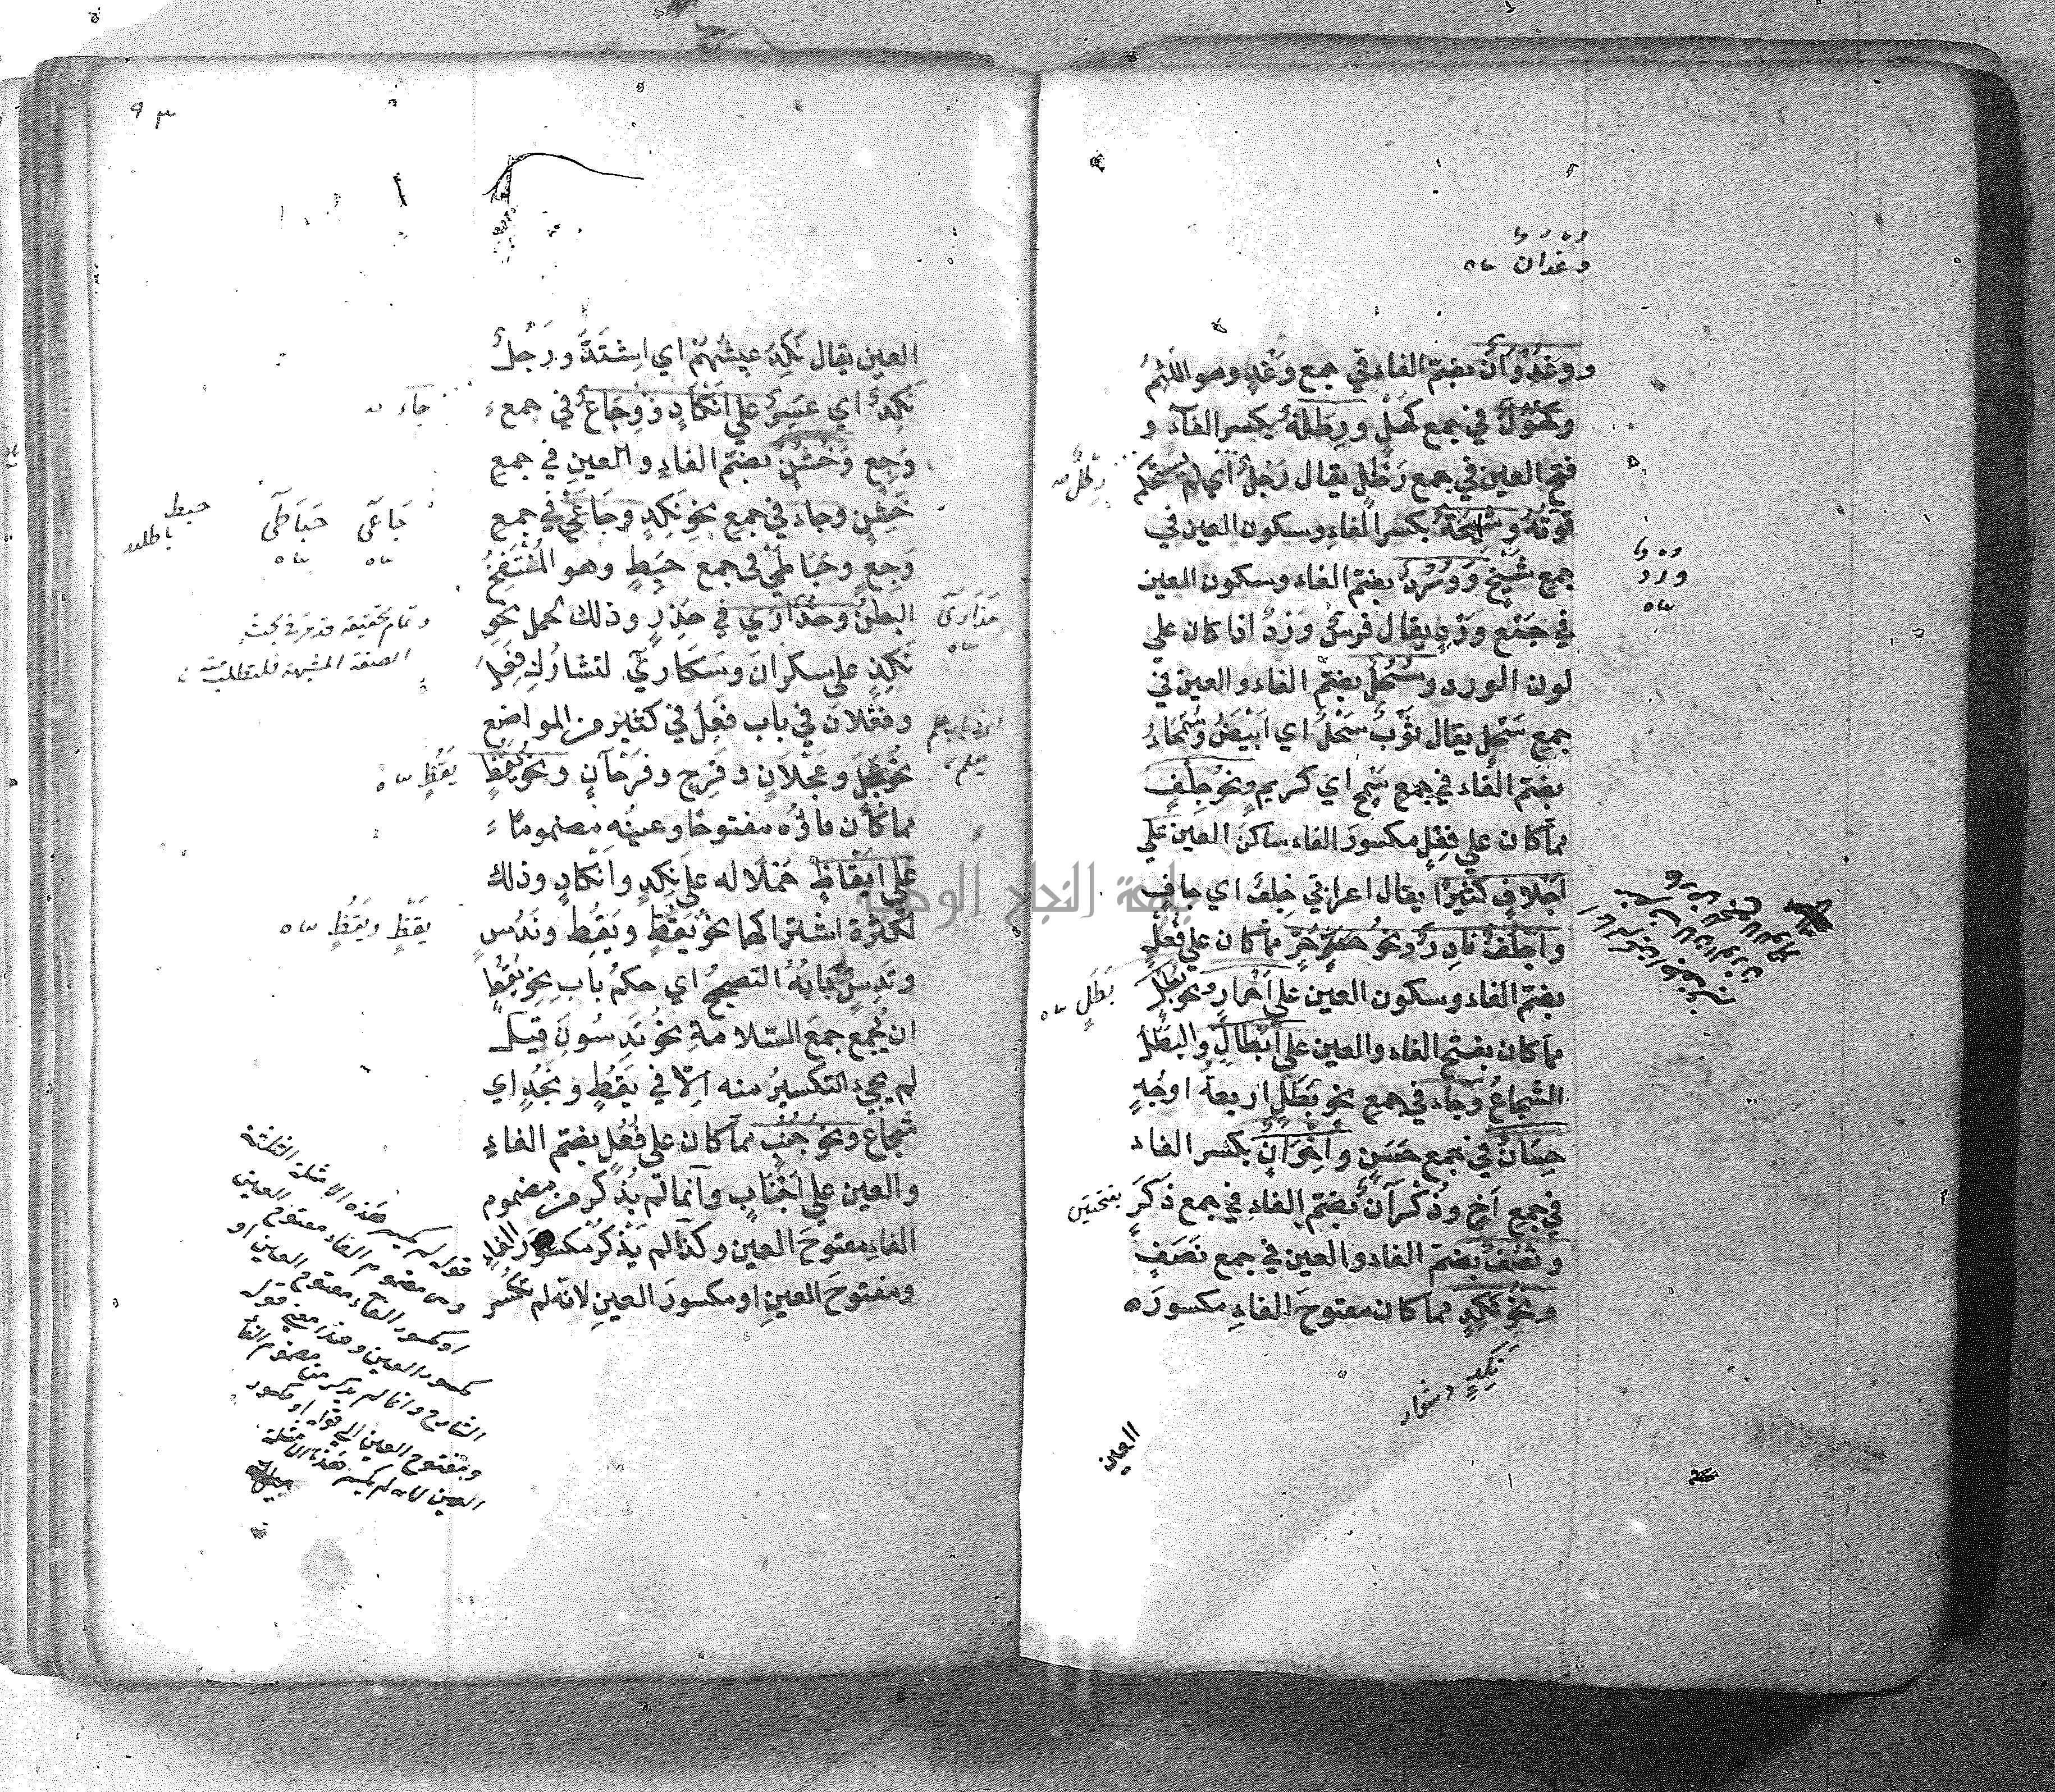 وغدان
ووغدان بضم الفاء في جمع وغد وهو اللئيم
وكهول في جمع كهل ورطلة بكسر الفاء و
فتح العين في جمع رطل يقال رجل اي لم يستحكم
قوته وشيخة بكسر الفاء وسكون العين في
جمع شيخ وورد بضم الفاء وسكون العين
في جمع ورد يقال فرس ورد اذا كان علي
لون الورد وسحل بضم الفاء والعين في
جمع سحل يقال ثوب سحل اي ابيض وسمحاء
بضم الفاء في جمع سمح اي كريم ونحو جلف
مما كان علي فعل مكسور الفاء ساكن العين علي
اجلاف كثيرا يقال اعرابي جلف اي جاف
واجلف نادر ونحو حر مما كان علي فعل
بضم الفاء وسكون العين علي احرار ونحو بطل
مما كان بفتح الفاء والعين علي ابطال والبطل
الشجاع وجاء في جمع نحو بطل اربعة اوجه
حسان في جمع حسن واخوان بكسر الفاء
في جمع اخ وذكران بضم الفاء في جمع ذكر
ونصف بضم الفاء والعين في جمع نصف
ونحو نكد مما كان مفتوح الفاء مكسوره
العين
رطل
ورد
بطل
بفتحتين
نكد
العين يقال نكد عيشهم اي اشتد ورجل
نكد اي عسر علي انكاد ووجاع في جمع
وجع وخشن بضم الفاء والعين في جمع
خشن وجاء في جمع نحو نكد وجاعي في جمع
وجع وحباطي في جمع حبط وهو المنتفخ
البطن وحذاري في حذر وذلك لحمل نحو
نكد علي سكران وسكاري لتشارك فعل
وفعلان في باب فعل في كثير من المواضع
نحو عجل وعجلان وفرح وفرحان ونحو يقظ
مما كان فاؤه مفتوحا وعينه مضموما
علي ايقاظ حملا له علي نكد وانكاد وذلك
لكثرة اشتراكهما نحو يقظ ويقظ وندس
وندس وبابه التصحيح اي حكم باب نحو يقظ
ان يجمع جمع السلامة نحو ندسون قيل
لم يجيء التكسير منه الا في يقظ ونجد اي
شجاع ونحو جنب مما كان علي فعل بضم الفاء
والعين علي اجناب وانما لم يذكر من مضموم
الفاء مفتوح العين وكذا لم يذكر مكسور الفاء
ومفتوح العين او مكسور العين لانه لم يكسر
جاء
جاعي حباطي
حبط
وتمام تحقيقه قد مر في بحث
الصفة المشبهة فلتطلب منه
حذاري
يقظ
يقظ ويقظ
قوله لم يكسر هذه الامثلة الثلثة
ومن مضموم الفاء مفتوح العين
او مكسور الفاء مفتوح العين او
مكسور العين وهذا معني قوله
الشارح وانما لم يذكر من مضموم الفاء
ومفتوح العين الي قوله او مكسور
العين لانه لم يكسر هذه الامثلة